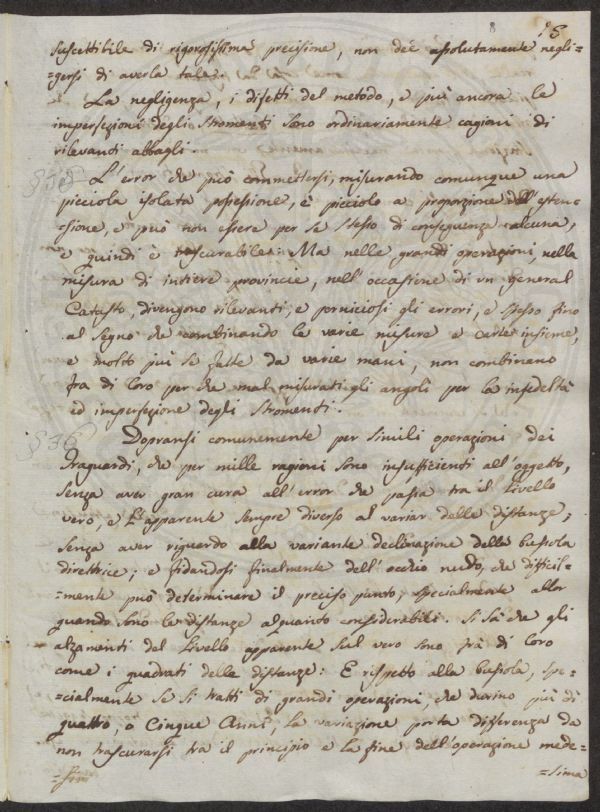 8 15
suscettibile di rigorosissima precisione, non deè assolutamente negli-
=gersi di averla tale.
La negligenza, i difetti del metodo, e più ancora le
imperfezioni degli stromenti sono ordinariamente cagioni di
rilevanti abbagli.
L'error che può commettersi, misurando comunque una
picciola isolata possessione, è picciolo a proporzione dell'esten-
=sione, e può non essere per se stesso di conseguenza alcuna,
e quindi è trascurabile. Ma nelle grandi operazioni, nella
misura di intiere provincie, nell'occasione di un general
Catasto, divengono rilevanti, e perniciosi gli errori, e spesso fino
al segno che combinando le varie misure e carte insieme,
e molto più se fatte da varie mani, non combinano
fra di loro per che mal misurati gli angoli per la infedeltà
ed imperfezione degli stromenti.
Dopransi comunemente per simili operazioni dei
Traguardi, che per mille ragioni sono insufficienti all'oggetto,
senza aver gran cura all'error che passa tra il Livello
vero, e l'apparente sempre diverso al variar delle distanze;
senza aver riguardo alla variante declinazione della bussola
direttrice; e fidandosi finalmente dell'occhio nudo, che difficil-
=mente può determinare il preciso punto, specialmente allor
quando sono le distanze alquanto considerabili. Si sà che gli
alzamenti del Livello apparente sul vero sono frà di loro
come i quadrati delle distanze: E rispetto alla bussola, spe-
=cialmente se si tratti di grandi operazioni, che durino più di
quattro, o Cinque Anni, la variazione porta differenza da
non trascurarsi tra il principio e la fine dell'operazione mede-
=sima